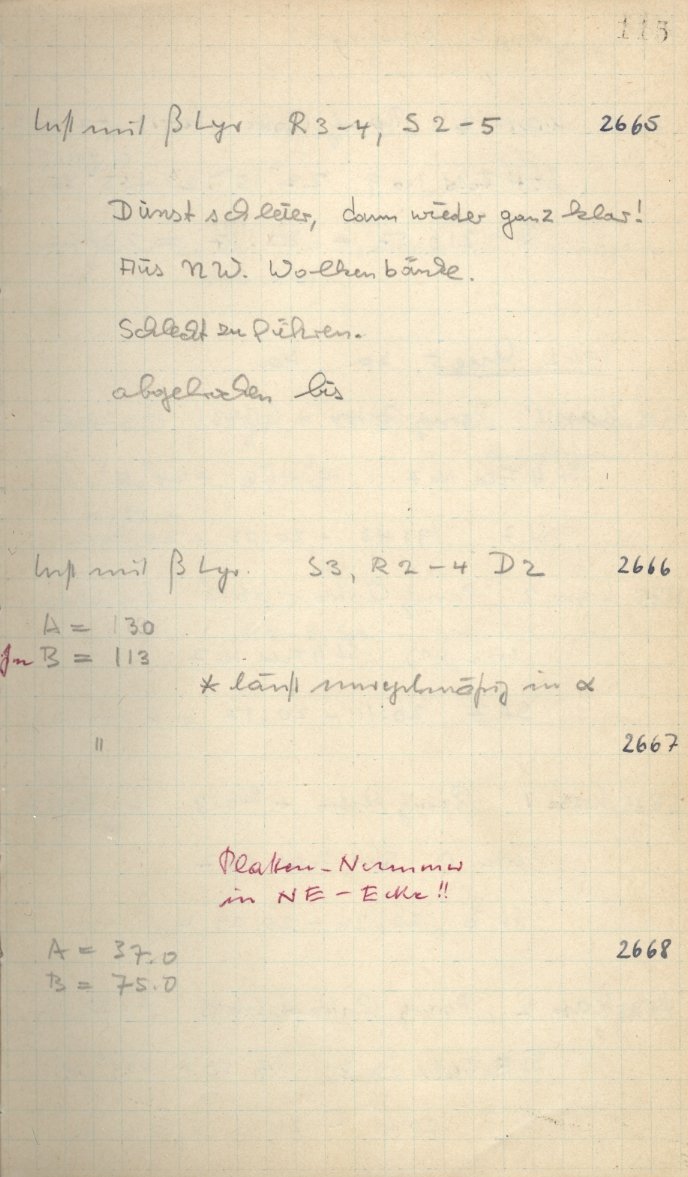 113
Luft mit β Lyr R 3-4, S 2-5 2665
Dunstschleier, dann wieder ganz klar!
Aus NW. Wolkenbänke.
Schlecht zu führen.
abgebrochen bis
Luft mit β Lyr. S3, R 2-4 D2 2666
A = 130
B = 113
* läuft unregelmäßig in α
" 2667
Platten-Nummer
in NE-Ecke!!
A = 37.0 2668
B = 75.0